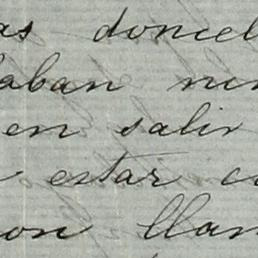 as doncel
aban nin
en salir
estar co
on llam